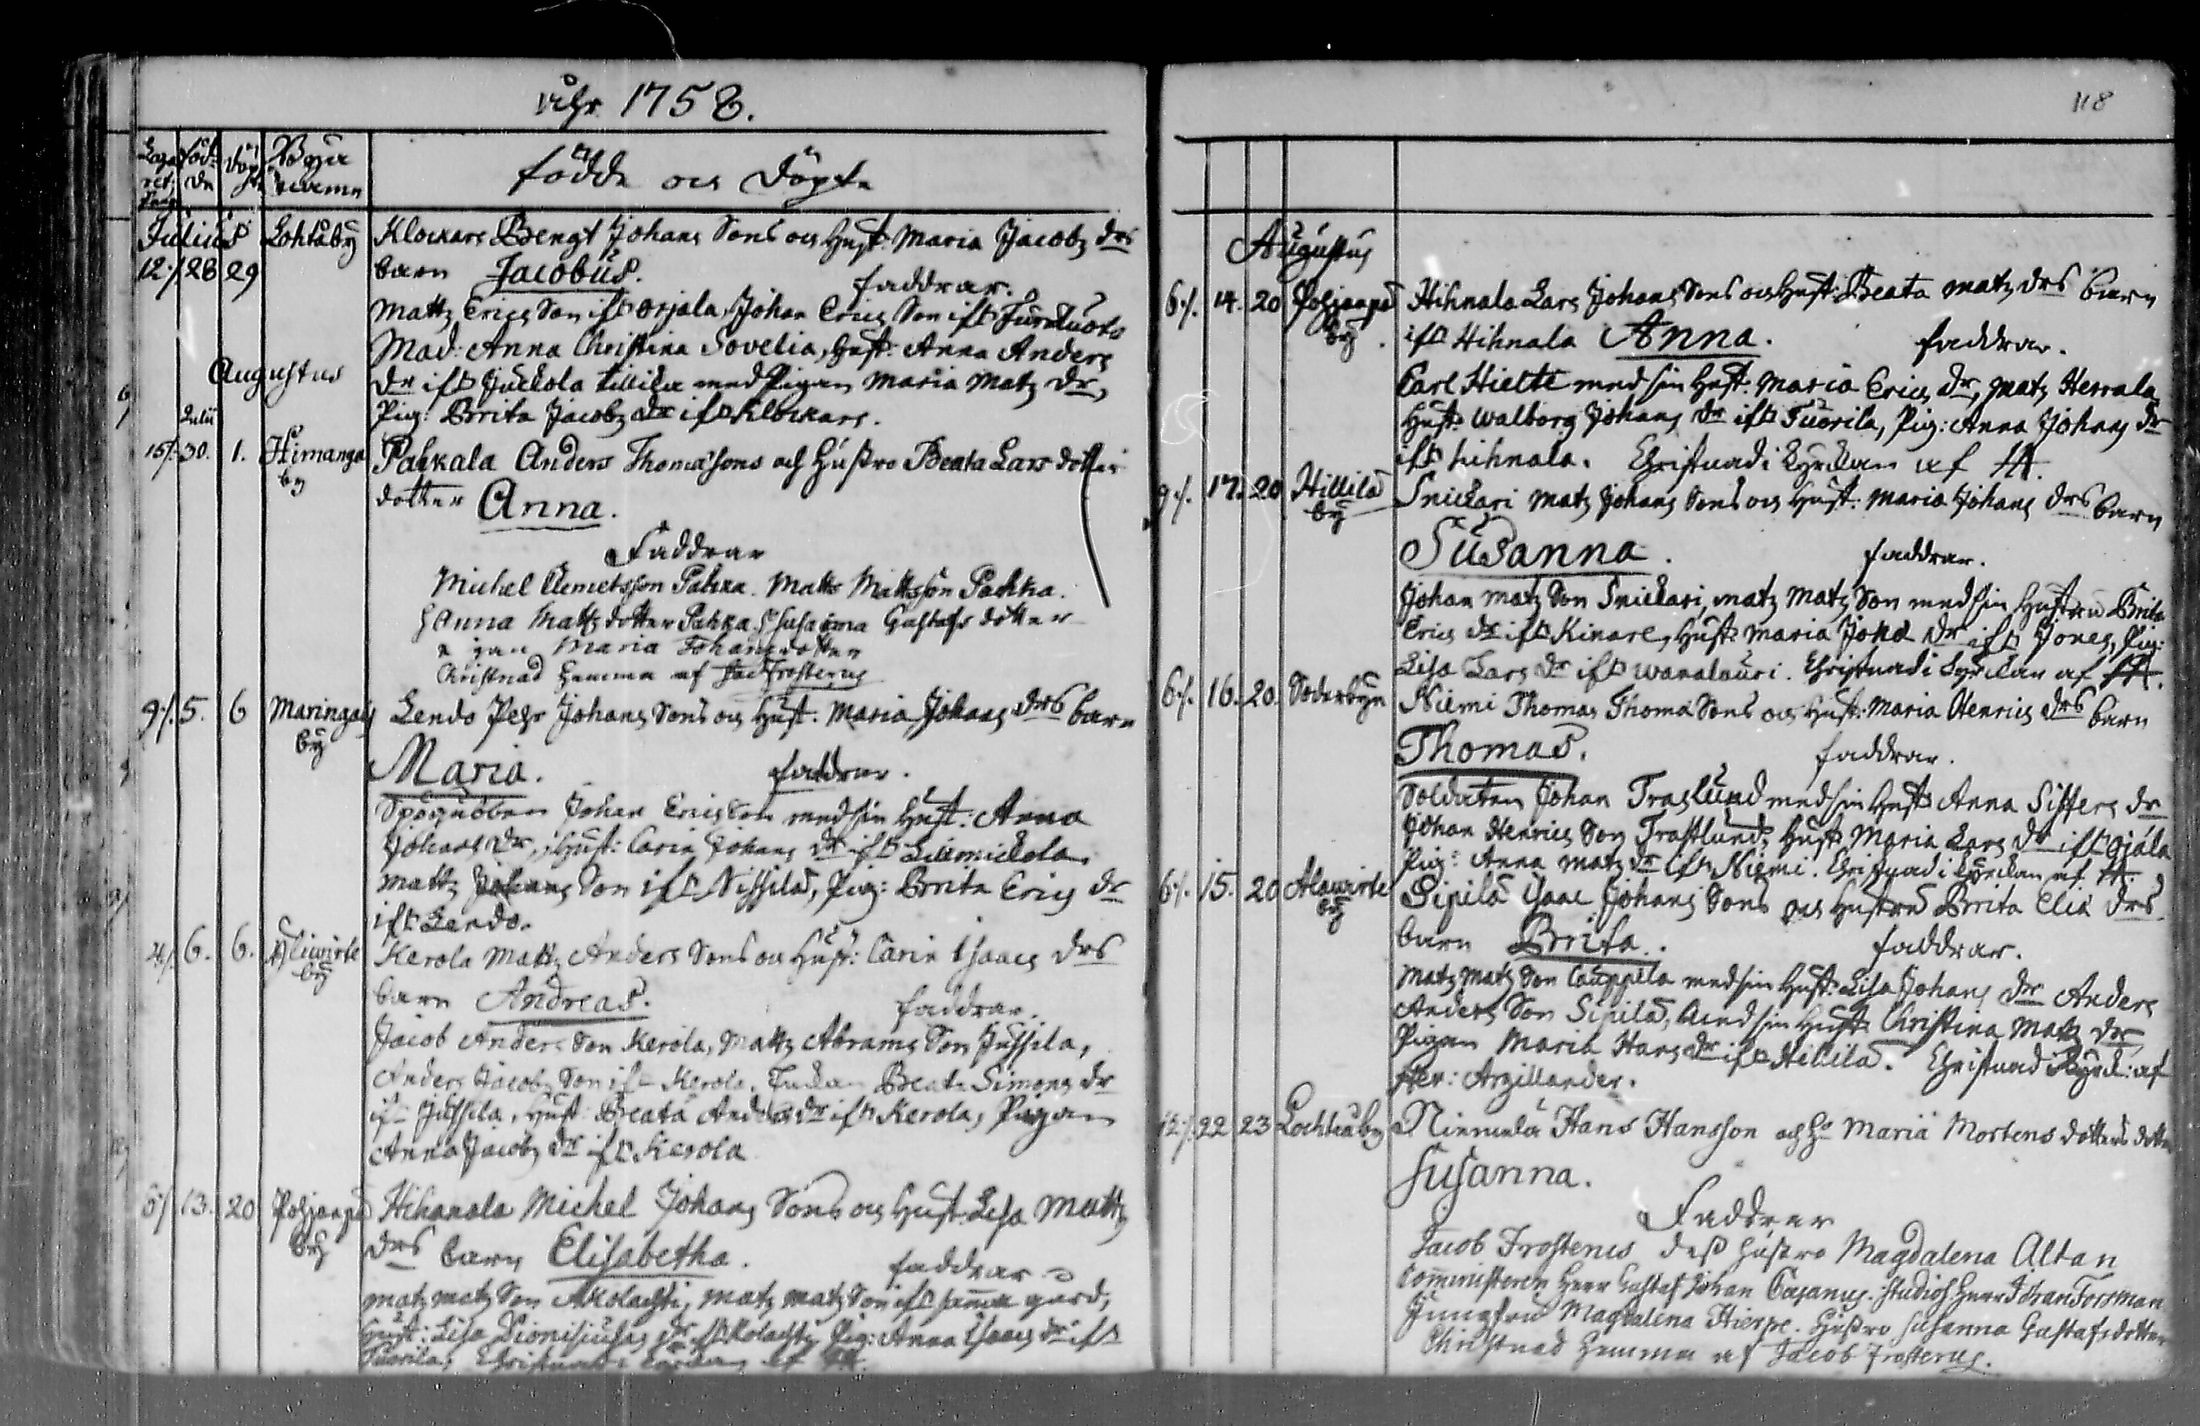 åhr 1758.
föd-
de
döp
te
Byja
namn
födde och döpte
Julius Lohtåby Klockare Bengt Johans Sons och Hust: Maria Jacobz drs
12./. 28 29 barn Jacobus. faddrar.
Mattz Erics Son ifr orjala, Johan Erics Son ifr
Mad: Anna Christina Sovelia, Hust: Anna Anders
Augustus dr ifr Juckola med Pigan Maria Matz dr,
Julii Pig: Brita Jacobz dr ifr Klockars.
15/. 30. 1. Himanga by Pahkala Anders Thomæsons och Hustro Beata Lars dotters
dotter Anna.
Faddrar
Michel Clemetsson Pahka. Matts Mattsson Pahka.
H Anna Mattsdotter Pahka, H Susanna Gustafs dotter
Maria Johansdotter
Christnad hemma af Jac Frosterus
9./. 5. 6 Maringais by Lendo Pehr Johans Sons och Hust: Maria Johans drs barn
Maria. faddrar.
Johan Erics Son med sin Hust: Anna
Johans dr, Hust: Carin Johans dr ifr Lillmickola,
Mattz Johans Son ifr Nissilä, Pig: Brita Erics dr
ifr Lendo.
4/. 6. 6. by Kerola Mattz Anders Sons och Hust: Carin Isaacs drs
barn Andreas. faddrar.
Jacob Anders Son Kerola, Mattz Abrams Son Jussila,
Anders Jacobz Son ifr Kerola, Beata Simons dr
ifr Jussila, Hust: Beata Anders dr ifr Kerola, Pigan
Anna Jacobz dr ifr Kerola
5/. 13. 20 Pohjanpä by Hihnala Michel Johans Sons och Hust: Lisa Mattz
drs barn Elisabetha. faddrar
Matz Matz Son, Matz Matz Son ifr samma gård,
Hust: Lisa Dionisius dr ifr Kolachti, Pig: Anna Isaacs dr ifr
Tuorila, Christnad i Kyrckan af
118
Augustus
6./. 14. 20 Pohjanpä by Hihnala Lars Johans Sons och Hust: Beata Matz drs barn
ifr Hihnala Anna. faddrar.
Carl Hiette med sin Hust: Maria Erics dr, Matz Herrala
Hust: Walborg Johans dr ifr Tuorila, Pig: Anna Johans dr
ifr Hihnala. Christnad i Kyrckan af
9./. 17. 20 Hillilä by Snickari Matz Johans Sons och Hust: Maria Johans drs barn
Susanna. faddrar.
Johan Matz Son Snickari, Matz Matz Son med sin Hustru Brita
Erics dr ifr Kinare, Hust: Maria dr ifr Jones, Pig:
Lisa Lars dr ifr Wanalauri. Christnad i Kyrckan af
6./. 16. 20. Söderbyn Niemi Thomas Thomæ Sons och Hust: Maria Henrics drs barn
Thomas. faddrar.
Soldaten Johan Traslund med sin Hust: Anna Siffers dr
Johan Henrics Son Trastlund, Hust: Maria Lars dr ifr
Pig: Anna Matz dr ifr Niemi. Christnad i Kyrckan af
6./. 15. 20 Alawirte by Sipilä Isaac Johans Sons och Hustru Brita Eliæ drs
barn Brita. faddrar.
Matz Matz Son Cauppila med sin Hust: Lisa Johans dr Anders
Anders Son Sipilä, med sin Hust: Christina Matz dr,
Pigan Maria Hans dr ifr Hillilä. Christnad i Kyrck: af
Her: Argillander.
12./. 22 23 Lochteåby Niemelä Hans Hansson och H: Maria Mortens dotters dotter
Susanna.
Faddrar
Jacob Frosterus dess hustro Magdalena Altan
Comministeren Herr Gustaf Johan Cajanus. Studios. Herr Johan Forsman
Jungfru Magdalena Hierpe. Hustro Susanna Gustafsdotter
Christnad hemma af Jacob Frosterus.